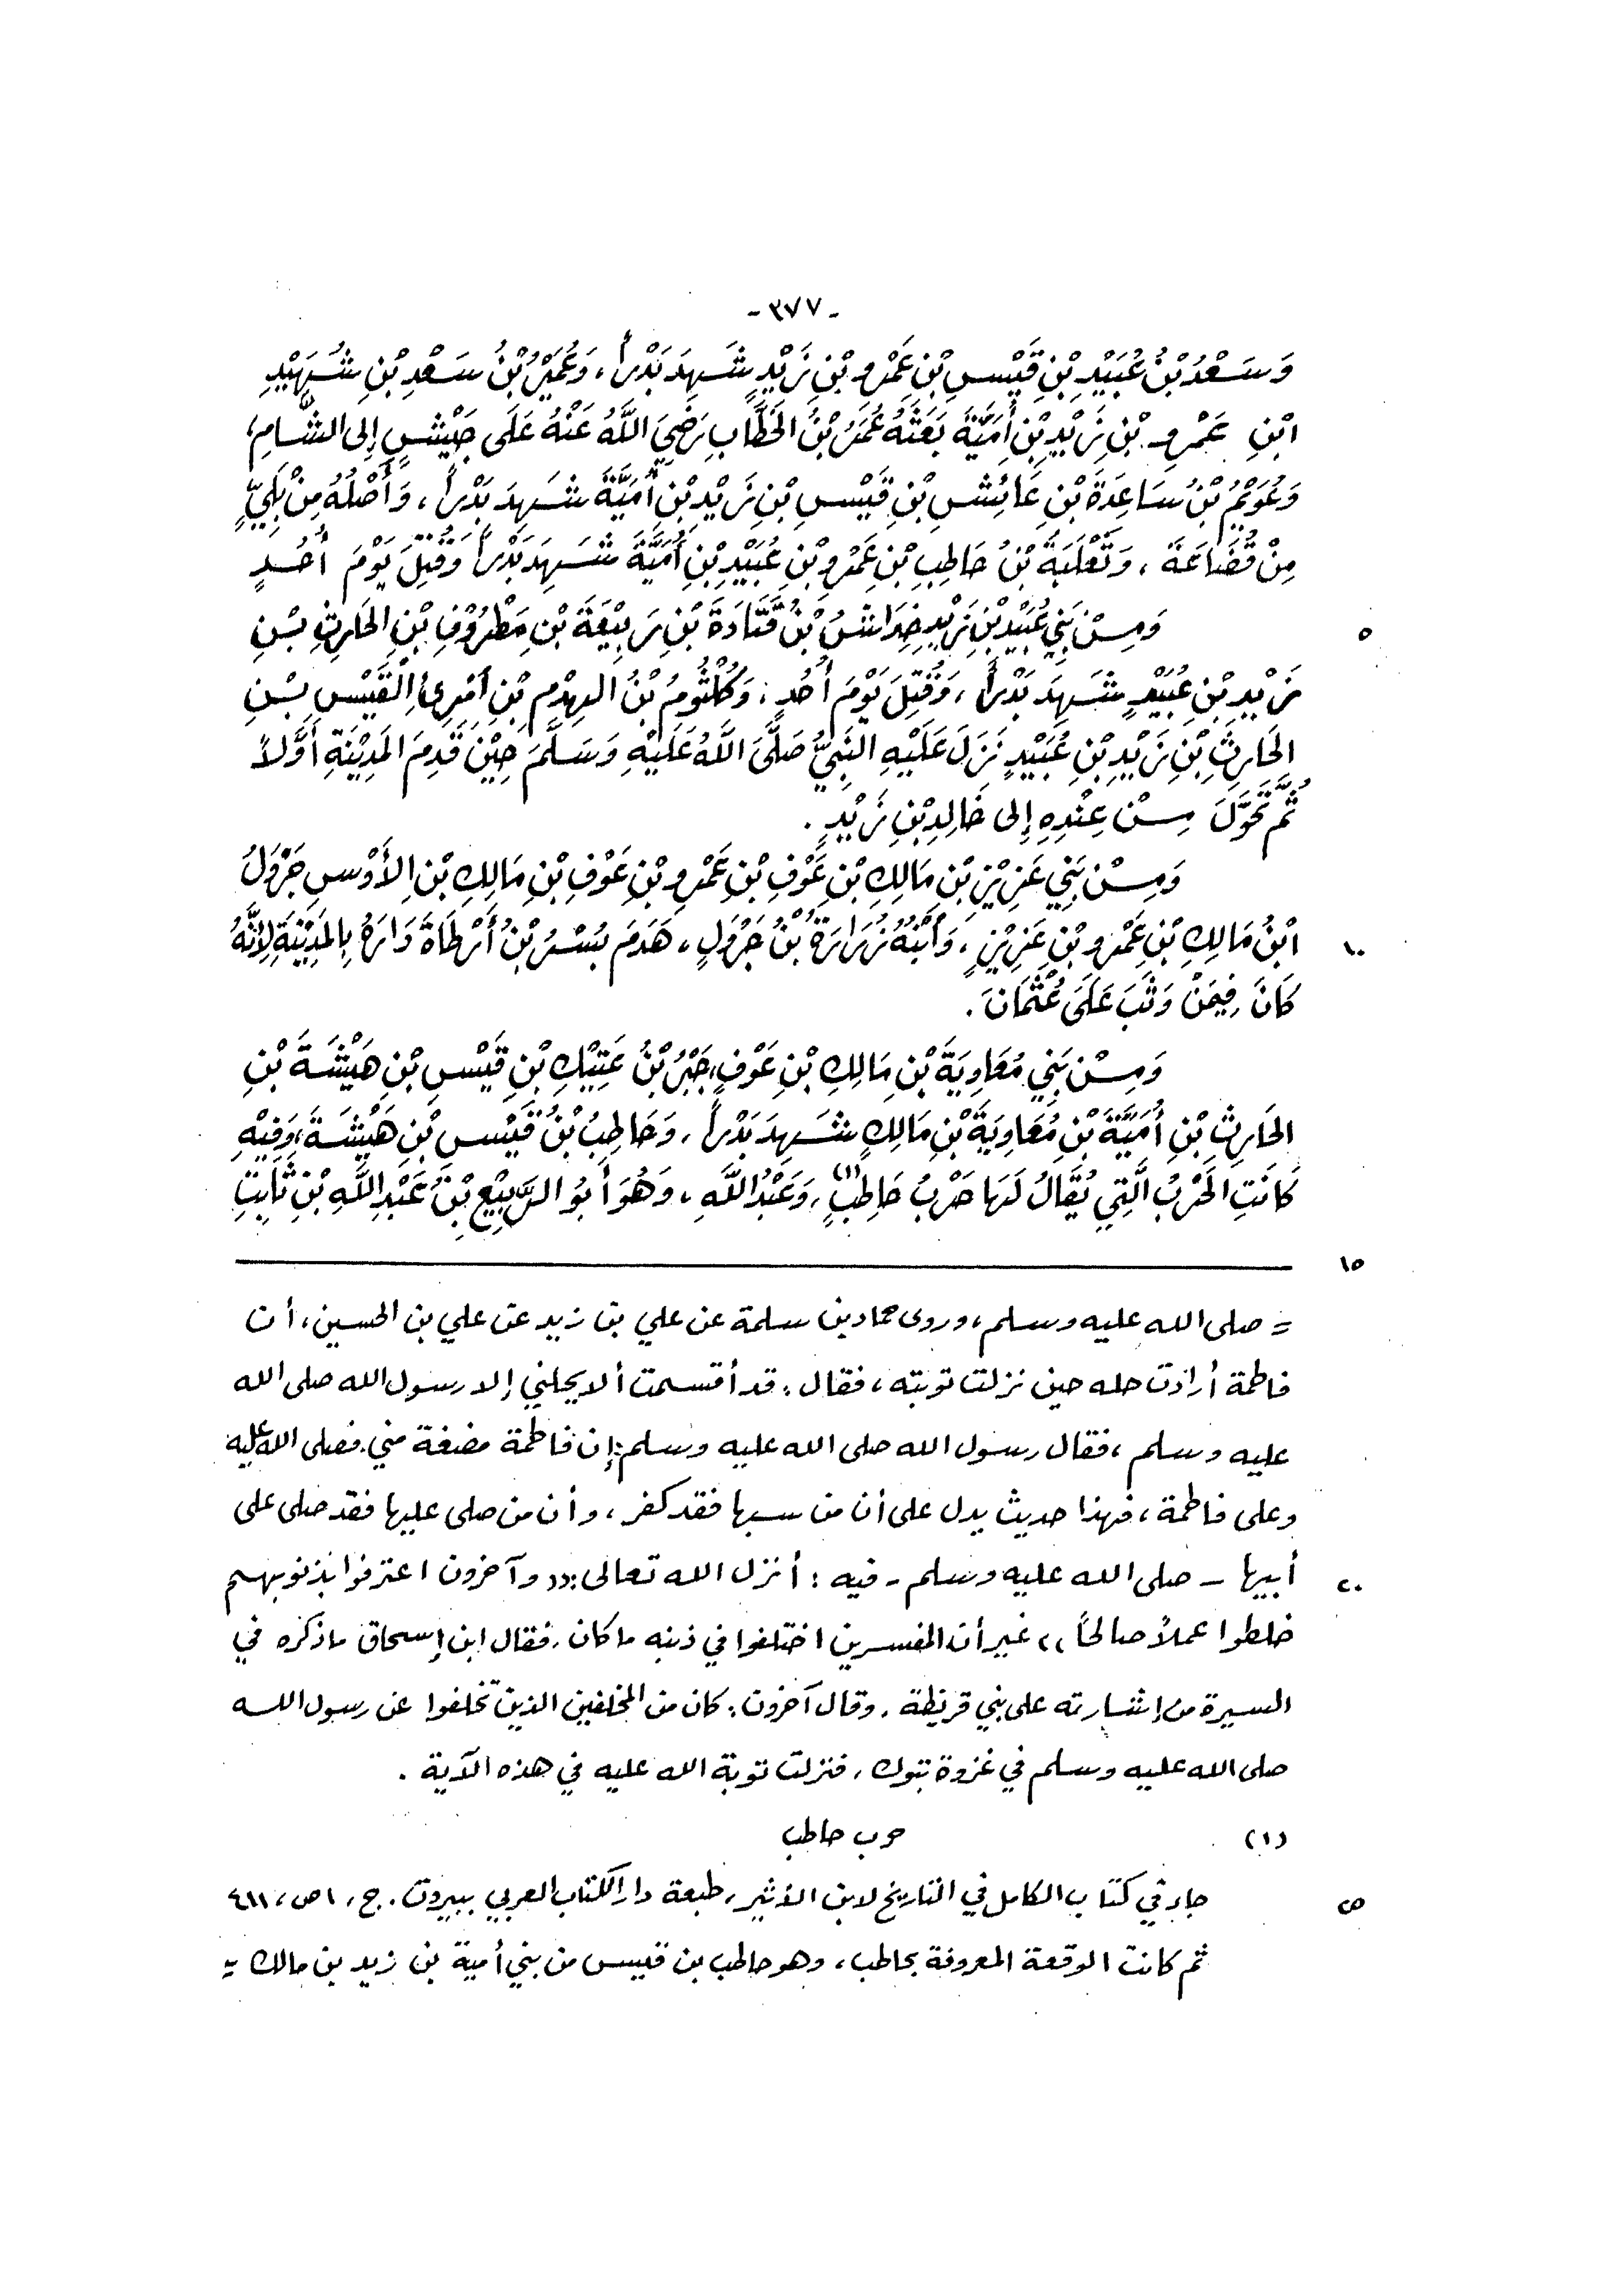 - ٣٧٧ -
وَسَعْدُ بْنُ عُبَيْدِ بْنِ قَيْسِ بْنِ عَمْرِو بْنِ زَيْدٍ شَهِدَ بَدْراً، وَعُمَيْرُ بْنُ سَعْدِ بْنِ شُهَيْدِ
ابْنِ عَمْرِو بْنِ زَيْدِ بْنِ أُمَيَّةَ بَعَثَهُ عُمَرُ بْنُ الخَطَّابِ رَضِيَ اللَّهُ عَنْهُ عَلَى جَيْشٍ إِلى الشَّامِ،
وَعُوَيْمُ بْنُ سَاعِدَةَ بْنِ عَائِشِ بْنِ قَيْسِ بْنِ زَيْدِ بْنِ أُمَيَّةَ شَهِدَ بَدْراً، وَأَصْلُهُ مِنْ بَلِيٍّ
مِنْ قُضَاعَةَ، وَثَعْلَبَةُ بْنُ حَاطِبِ بْنِ عَمْرِو بْنِ عُبَيْدِ بْنِ أُمَيَّةَ شَهِدَ بَدْراً وَقُتِلَ يَوْمَ أُحُدٍ
٥ وَمِنْ بَنِي عُبَيْدِ بْنِ زَيْدٍ خِدَاشُ بْنُ قَتَادَةَ بْنِ رَبِيْعَةَ بْنِ مَطْرُوْفِ بْنِ الحَارِثِ بْنِ
زَيْدِ بْنِ عُبَيْدٍ شَهِدَ بَدْراً، وَقُتِلَ يَوْمَ أُحُدٍ، وَكُلْثُومُ بْنُ الهِدْمِ بْنِ امْرِئِ القَيْسِ بْنِ
الحَارِثِ بْنِ زَيْدِ بْنِ عُبَيْدٍ نَزَلَ عَلَيْهِ النَّبِيُّ صَلَّى اللَّهُ عَلَيْهِ وَسَلَّمَ حِيْنَ قَدِمَ المَدِيْنَةِ أَوَّلاً
ثُمَّ تَحَوَّلَ مِنْ عِنْدِهِ إِلى خَالِدِ بْنِ زَيْدٍ.
وَمِنْ بَنِي عَزِيْزِ بْنِ مَالِكِ بْنِ عَوْفِ بْنِ عَمْرِو بْنِ عَوْفِ بْنِ مَالِكِ بْنِ الأَوْسِ جَرْوَلُ
١٠ ابْنُ مَالِكِ بْنِ عَمْرِو بْنِ عَزِيْزٍ، وَابْنُهُ زُرَارَةُ بْنُ جَرْوَلٍ، هَدَمَ بُسْرُ بْنُ أَرْطَاةَ دَارَهُ بِالمَدِيْنَةِ لِأَنَّهُ
كَانَ فِيمَنْ وَثَبَ عَلَى عُثْمَانَ.
وَمِنْ بَنِي مُعَاوِيَةَ بْنِ مَالِكِ بْنِ عَوْفٍ، جَبْرُ بْنُ عَتِيْكِ بْنِ قَيْسِ بْنِ هَيْشَةَ بْنِ
الحَارِثِ بْنِ أُمَيَّةَ بْنِ مُعَاوِيَةَ بْنِ مَالِكٍ شَهِدَ بَدْراً، وَحَاطِبُ بْنُ قَيْسِ بْنِ هَيْشَةَ، وَفِيْهِ
كَانَتِ الحَرْبُ الَّتِي يُقَالُ لَهَا حَرْبُ حَاطِبٍ(١)، وَعَبْدُ اللَّهِ، وَهُوَ أَبُو الرَّبِيْعِ بْنُ عَبْدِ اللَّهِ بْنِ ثَابِتِ
١٥
= صلى الله عليه وسلم، وروى حماد بن سلمة عن علي بن زيد عن علي بن الحسين، أن
فاطمة أرادت حله حين نزلت توبته، فقال: قد أقسمت ألا يحلني إلا رسول الله صلى الله
عليه وسلم، فقال رسول الله صلى الله عليه وسلم: إن فاطمة مضغة مني. فصلى الله عليه
وعلى فاطمة، فهذا حديث يدل على أن من سبها فقد كفر، وأن من صلى عليها فقد صلى على
٢٠ أبيها - صلى الله عليه وسلم - فيه: أنزل الله تعالى: «وآخرون اعترفوا بذنوبهم
خلطوا عملاً صالحاً» غير أن المفسرين اختلفوا في ذنبه ما كان، فقال ابن إسحاق ما ذكره في
السيرة من إشارته على بني قريظة، وقال آخرون: كان من المخلفين الذين تخلفوا عن رسول الله
صلى الله عليه وسلم في غزوة تبوك، فنزلت توبة الله عليه في هذه الآية.
(١) حرب حاطب
٢٥ جاء في كتاب الكامل في التاريخ لابن الأثير، طبعة دار الكتاب العربي ببيروت. ج، ١ ص، ٤١١
ثم كانت الوقعة المعروفة بحاطب، وهو حاطب بن قيس من بني أمية بن زيد بن مالك =